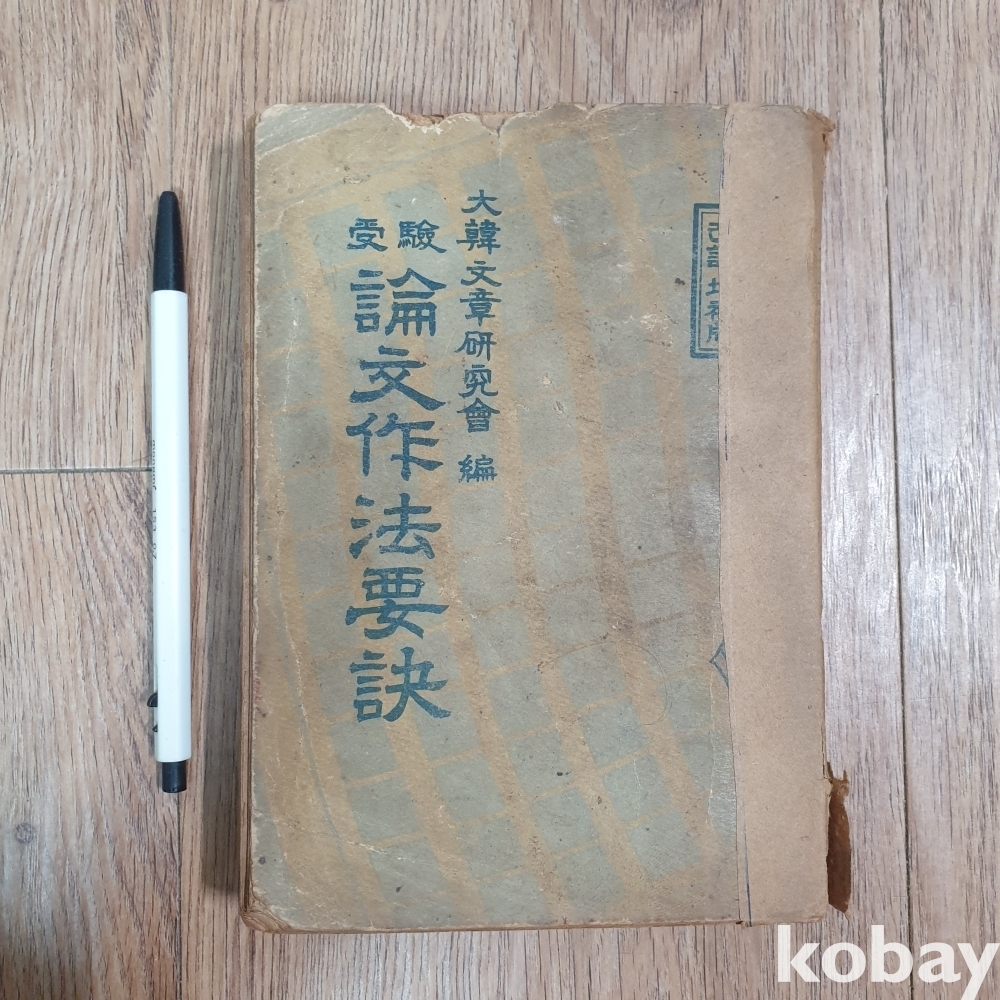 大韓文章硏究會 編
受驗
論文作法要訣
kobay